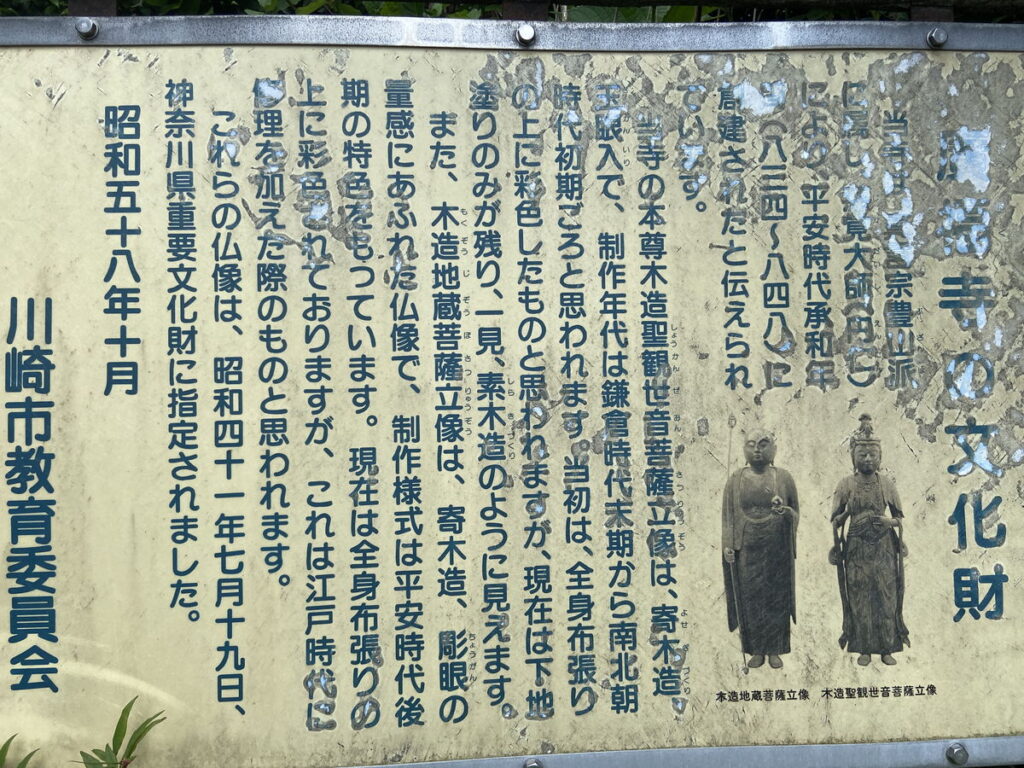 寺の文化財
当寺は 宗豊山派
に属し 覚大師(円仁)
により、平安時代承和年
(八三四〜八四八)に
創建されたと伝えられ
ています。
当寺の本尊木造聖観世音菩薩立像は、寄木造、
玉眼入で、制作年代は鎌倉時代末期から南北朝
時代初期ころと思われます。当初は、全身布張り
の上に彩色したものと思われますが、現在は下地
塗りのみが残り、一見、素木造のように見えます。
また、木造地蔵菩薩立像は、寄木造、彫眼の
量感にあふれた仏像で、制作様式は平安時代後
期の特色をもっています。現在は全身布張りの
上に彩色されておりますが、これは江戸時代に
修理を加えた際のものと思われます。
これらの仏像は、昭和四十一年七月十九日、
神奈川県重要文化財に指定されました。
昭和五十八年十月
川崎市教育委員会
木造聖観世音菩薩立像
木造地蔵菩薩立像